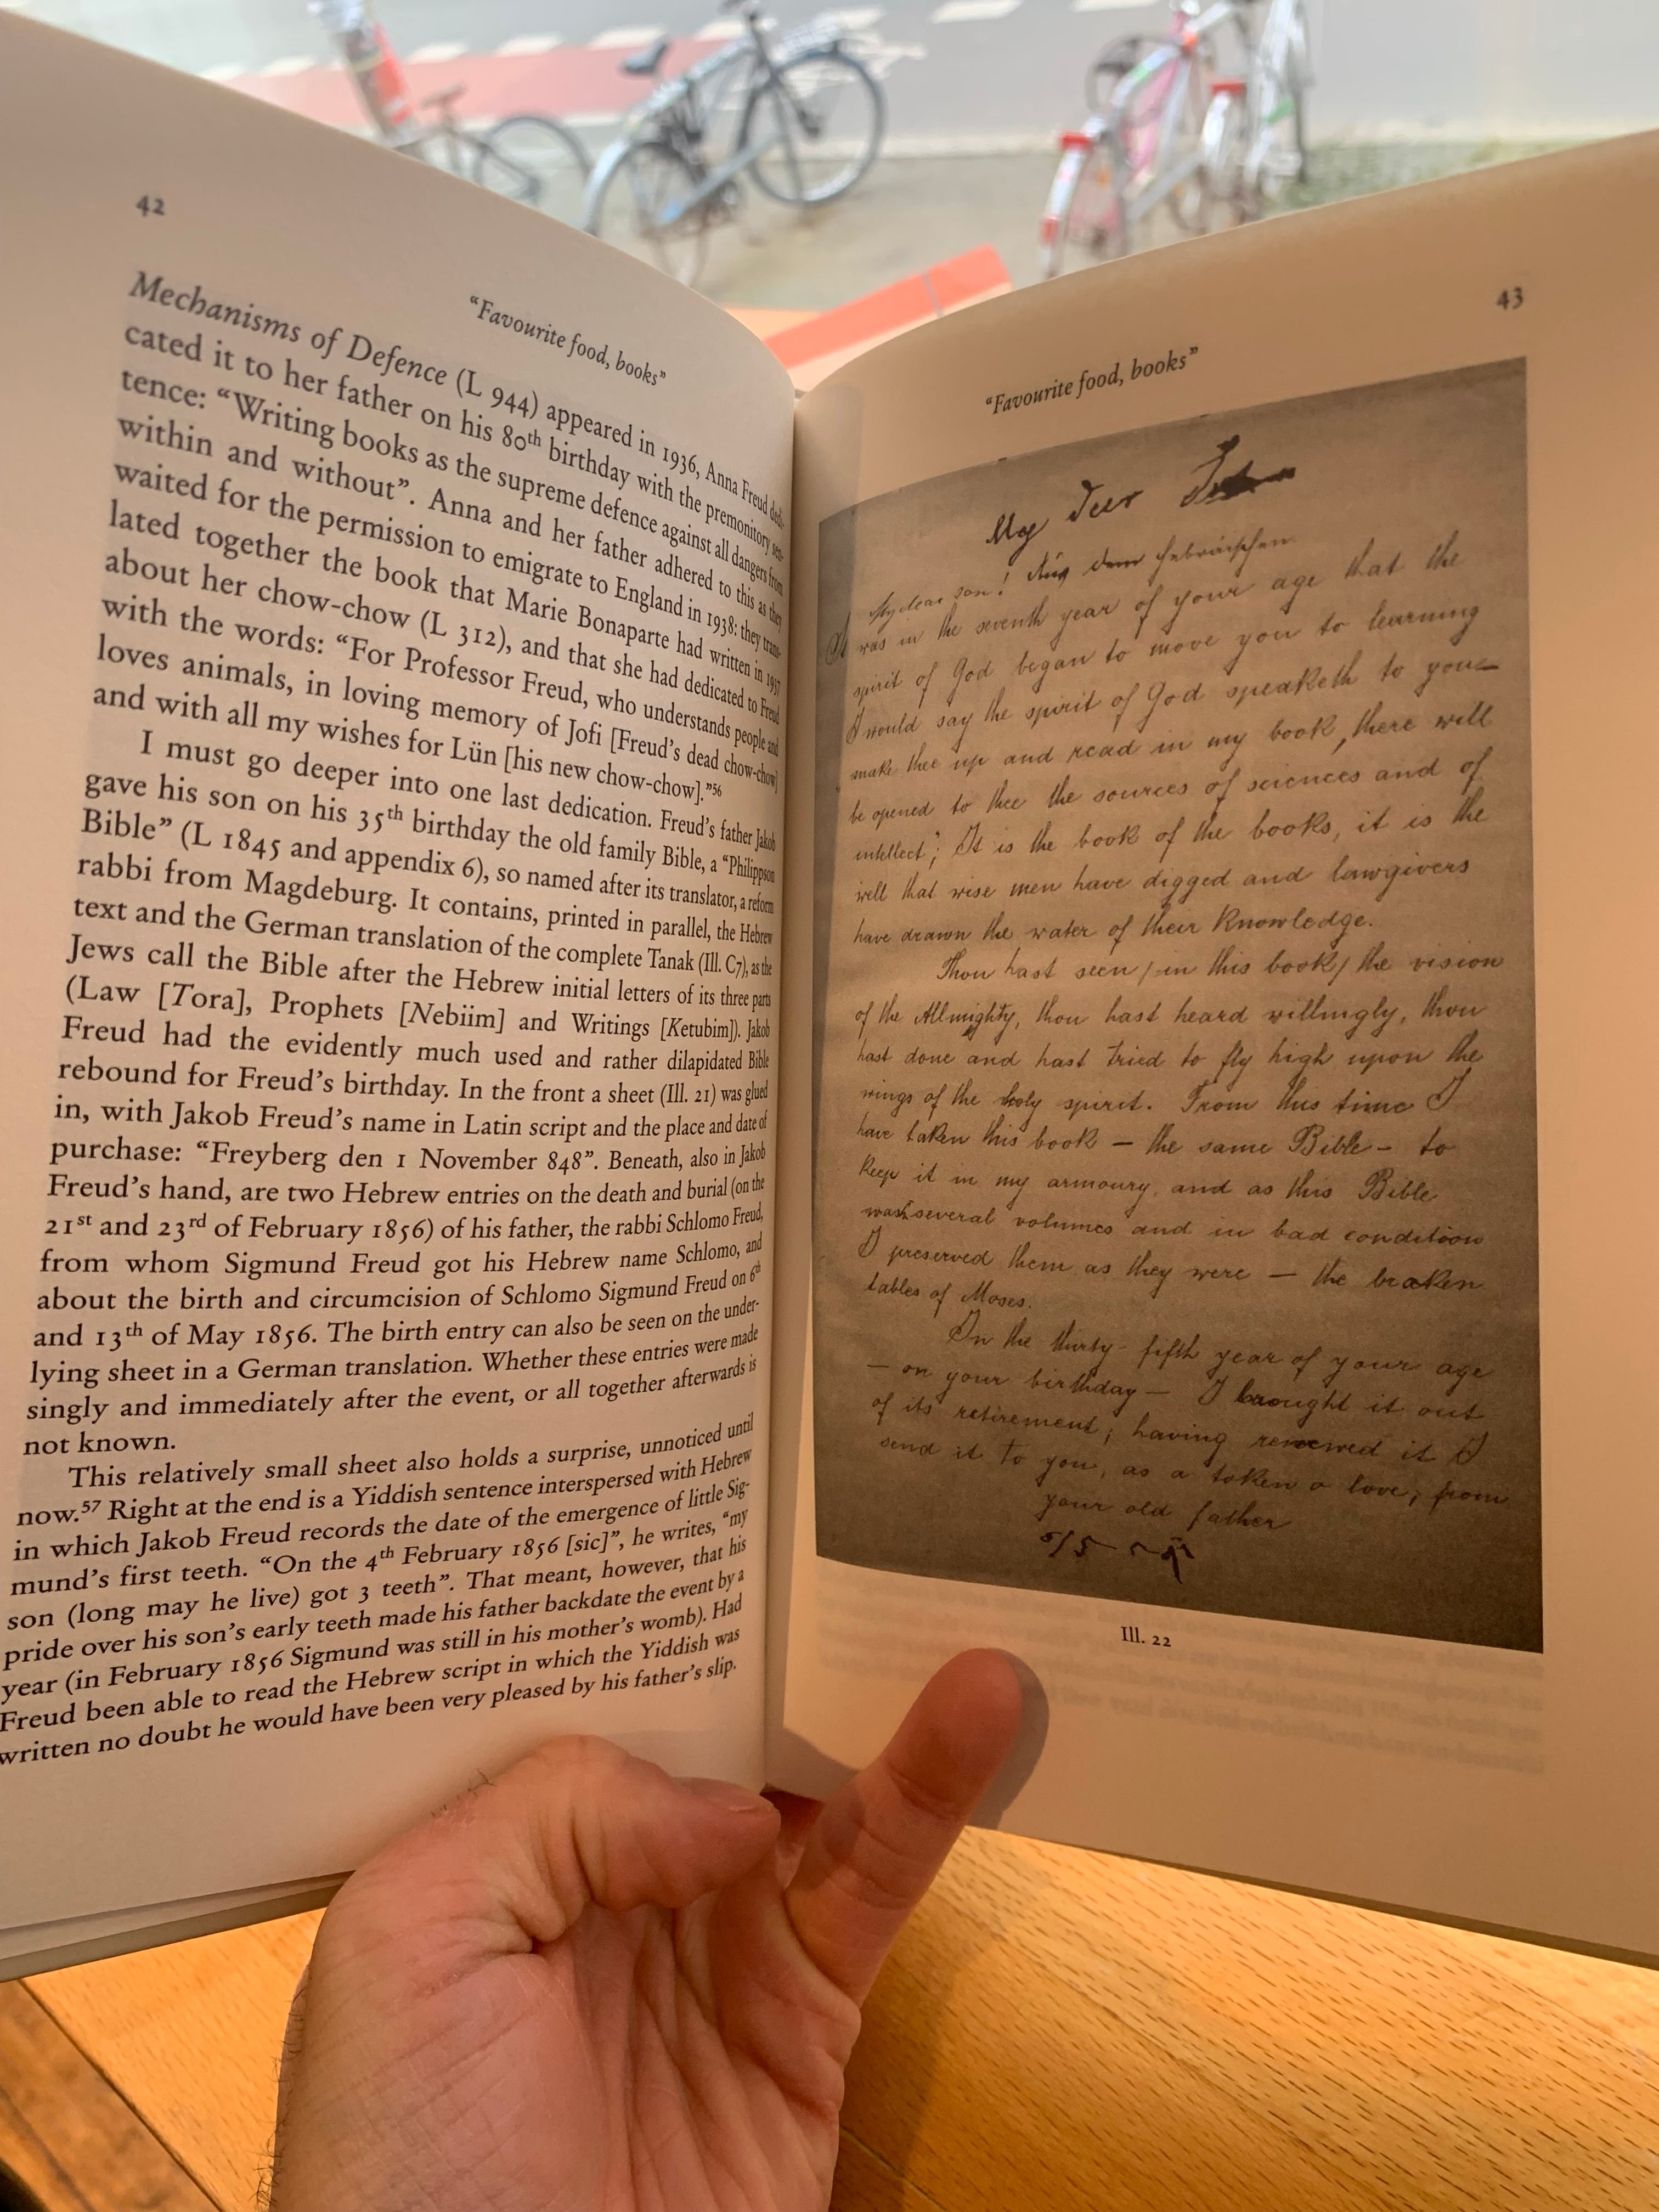 42
“Favourite food, books”
Mechanisms of Defence (L 944) appeared in 1936, Anna Freud dedi-
cated it to her father on his 80th birthday with the premonitory sen-
tence: “Writing books as the supreme defence against all dangers from
within and without”. Anna and her father adhered to this as they
waited for the permission to emigrate to England in 1938: they trans-
lated together the book that Marie Bonaparte had written in 1937
about her chow-chow (L 312), and that she had dedicated to Freud
with the words: “For Professor Freud, who understands people and
loves animals, in loving memory of Jofi [Freud’s dead chow-chow]
and with all my wishes for Lün [his new chow-chow].”56
I must go deeper into one last dedication. Freud’s father Jakob
gave his son on his 35th birthday the old family Bible, a “Philippson
Bible” (L 1845 and appendix 6), so named after its translator, a reform
rabbi from Magdeburg. It contains, printed in parallel, the Hebrew
text and the German translation of the complete Tanak (Ill. C7), as the
Jews call the Bible after the Hebrew initial letters of its three parts
(Law [Tora], Prophets [Nebiim] and Writings [Ketubim]). Jakob
Freud had the evidently much used and rather dilapidated Bible
rebound for Freud’s birthday. In the front a sheet (Ill. 21) was glued
in, with Jakob Freud’s name in Latin script and the place and date of
purchase: “Freyberg den 1 November 848”. Beneath, also in Jakob
Freud’s hand, are two Hebrew entries on the death and burial (on the
21st and 23rd of February 1856) of his father, the rabbi Schlomo Freud,
from whom Sigmund Freud got his Hebrew name Schlomo, and
about the birth and circumcision of Schlomo Sigmund Freud on 6th
and 13th of May 1856. The birth entry can also be seen on the under-
lying sheet in a German translation. Whether these entries were made
singly and immediately after the event, or all together afterwards is
not known.
This relatively small sheet also holds a surprise, unnoticed until
now.57 Right at the end is a Yiddish sentence interspersed with Hebrew
in which Jakob Freud records the date of the emergence of little Sig-
mund’s first teeth. “On the 4th February 1856 [sic]”, he writes, “my
son (long may he live) got 3 teeth”. That meant, however, that his
pride over his son’s early teeth made his father backdate the event by a
year (in February 1856 Sigmund was still in his mother’s womb). Had
Freud been able to read the Hebrew script in which the Yiddish was
written no doubt he would have been very pleased by his father’s slip.
43
“Favourite food, books”
My dear
My dear son! Aus dem Hebräischen
It was in the seventh year of your age that the
spirit of God began to move you to learning
I would say the spirit of God speaketh to you—
make thee up and read in my book, there will
be opened to thee the sources of sciences and of
intellect; It is the book of the books, it is the
well that wise men have digged and lawgivers
have drawn the water of their knowledge.
Thou hast seen / in this book / the vision
of the Allmighty, thou hast heard willingly, thou
hast done and hast tried to fly high upon the
wings of the holy spirit. From this time I
have taken this book — the same Bible — to
keep it in my armoury, and as this Bible
was several volumes and in bad condition
I preserved them as they were — the braken
tables of Moses.
In the thirty-fifth year of your age
— on your birthday — I brought it out
of its retirement, having renewed it I
send it to you, as a token o love, from
your old father
Ill. 22